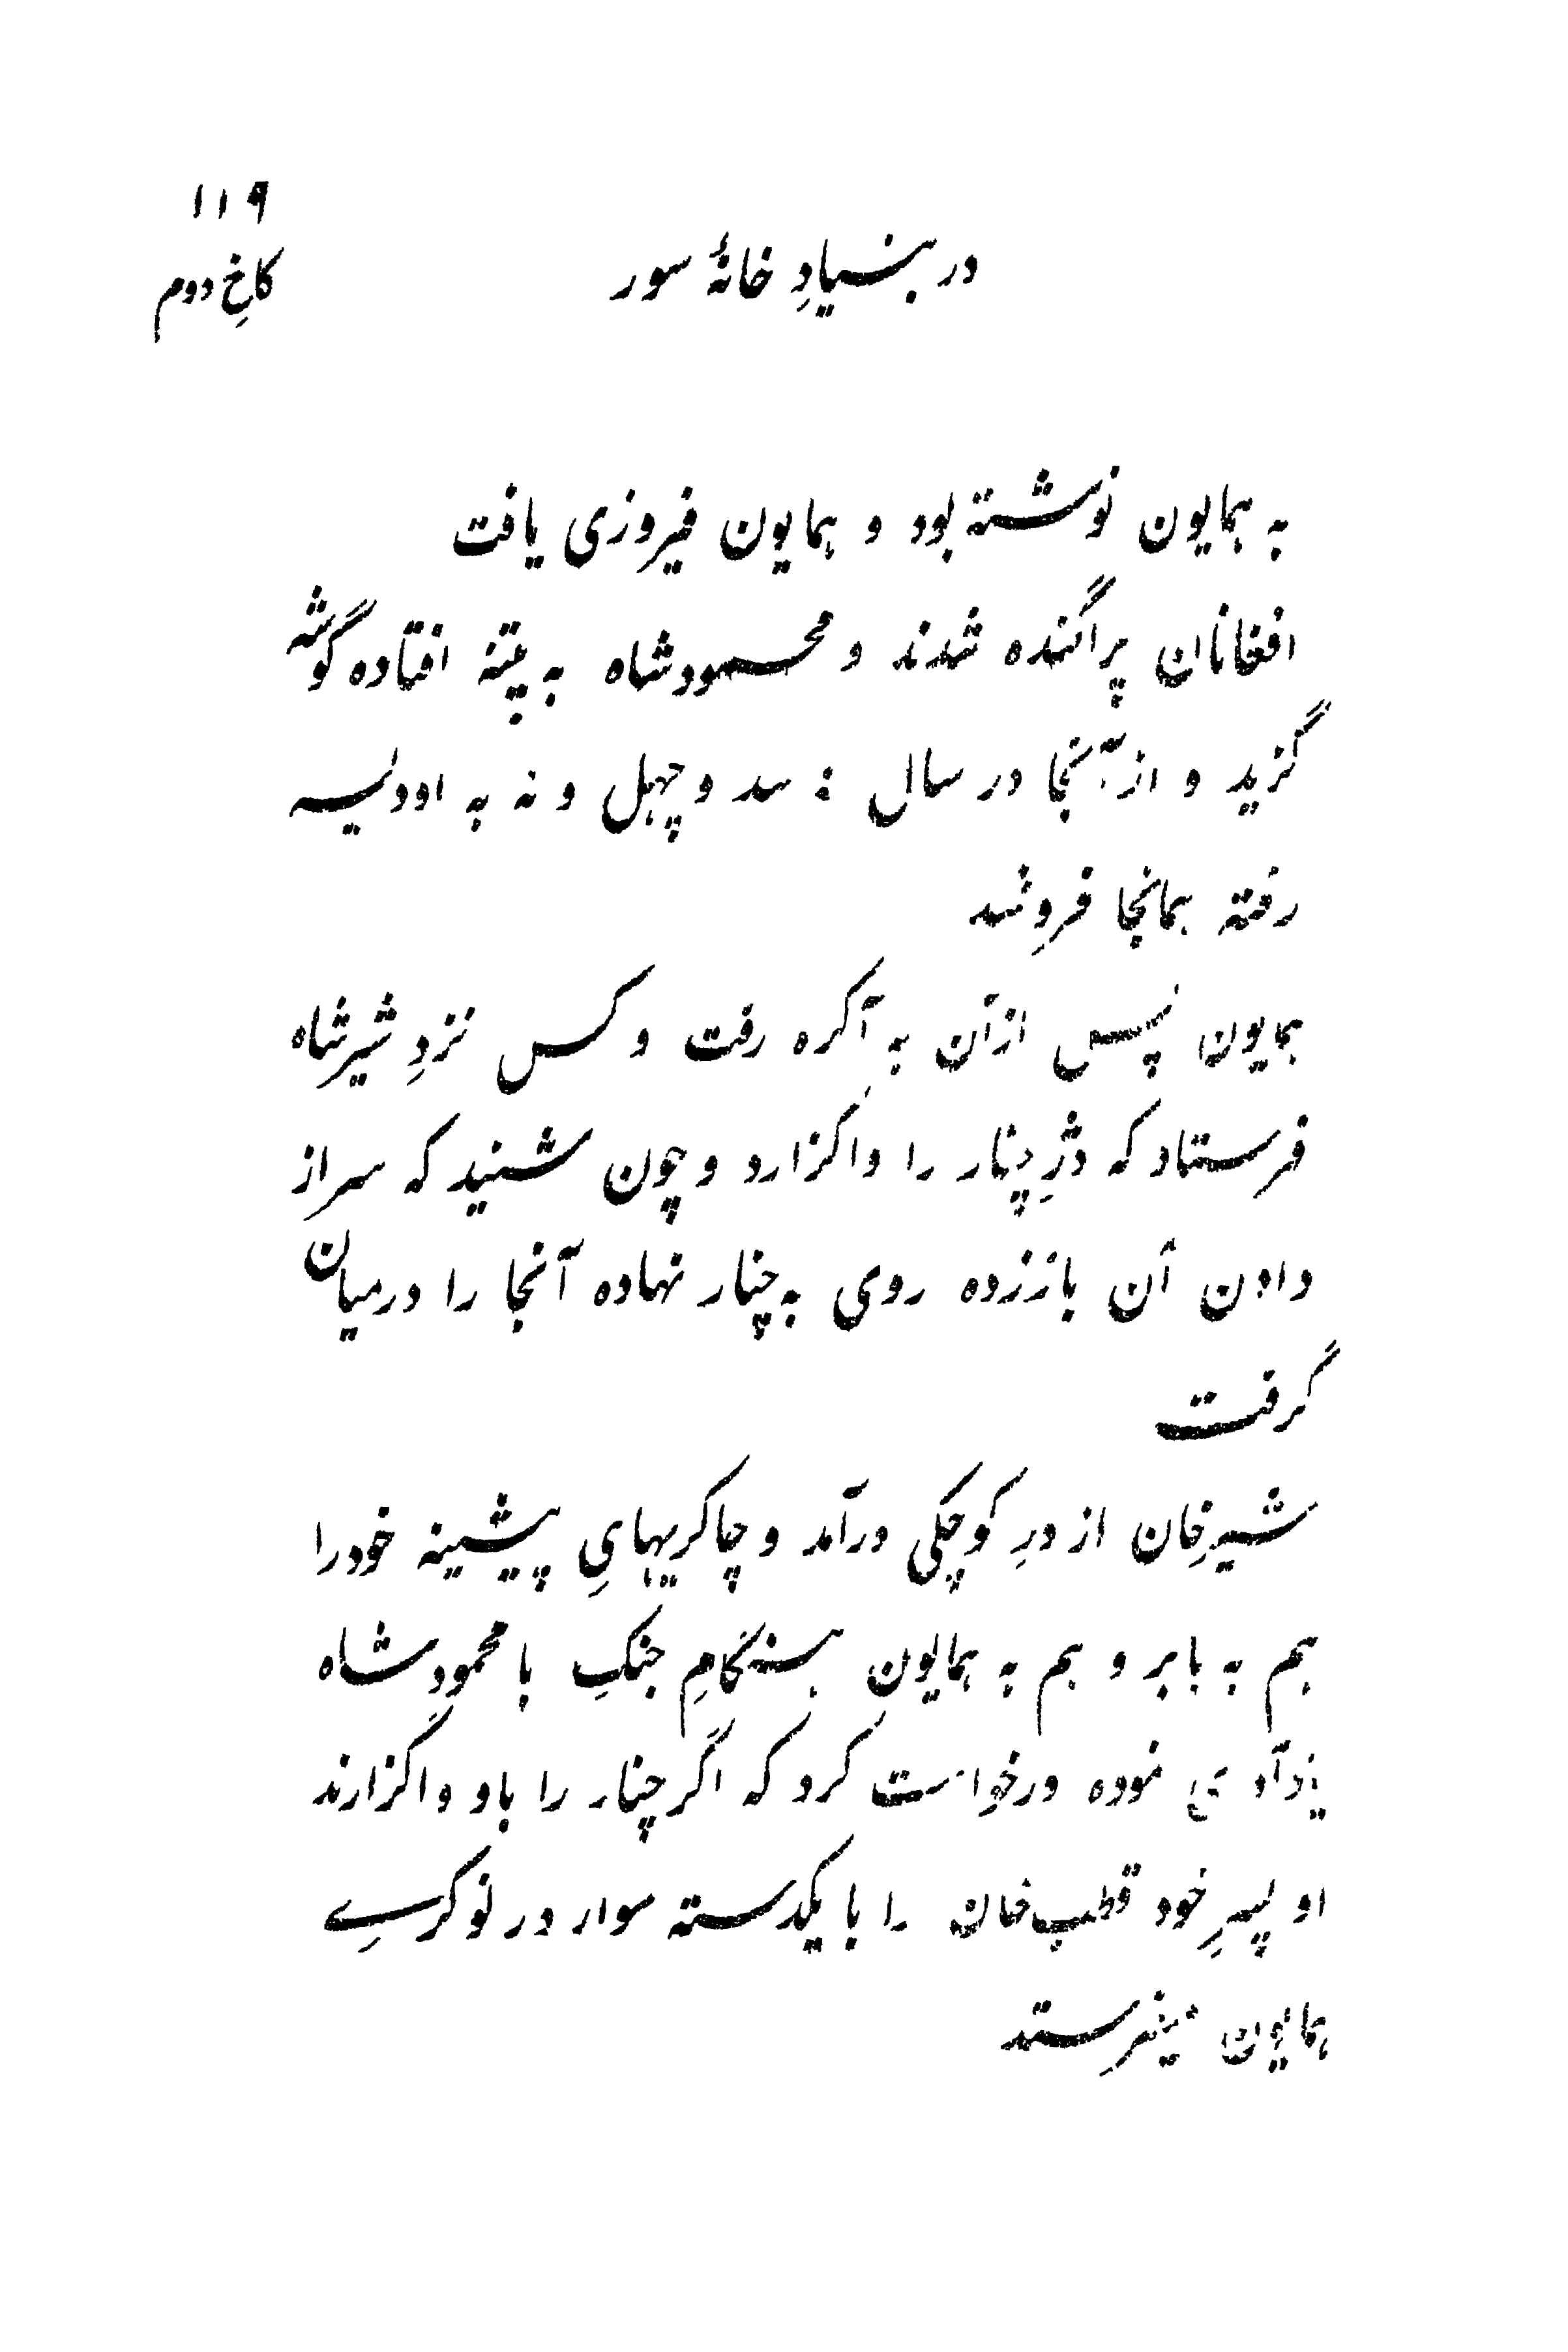 ۱۱۹
در بنیادِ خانهٔ سور
کاخِ دوم
به همایون نوشته بود و همایون فیروزی یافت
افغانان پراگنده شدند و محمودشاه به پتنه افتاده گوشه
گزید و از آنجا در سال : سد و چهل و نه به اودیسه
رفته همانجا فروشد
همایون پس ازآن به آگره رفت و کس نزدِ شیرشاه
فرستاد که دژِ چنار را واگزارد و چون شنید که سراز
دادن آن باززده روی به چنار نهاده آنجا را درمیان
گرفت
شیرخان از درِ کوچکی درآمد و چاکریهایِ پیشینه خودرا
هم به بابر و هم به همایون هنگامِ جنگِ با محمودشاه
نموده درخواست کرد که اگر چنار را باو واگزارند
او پسرِ خود قطب خان را با یکدسته سوار در نوکریِ
همایون میفرستد